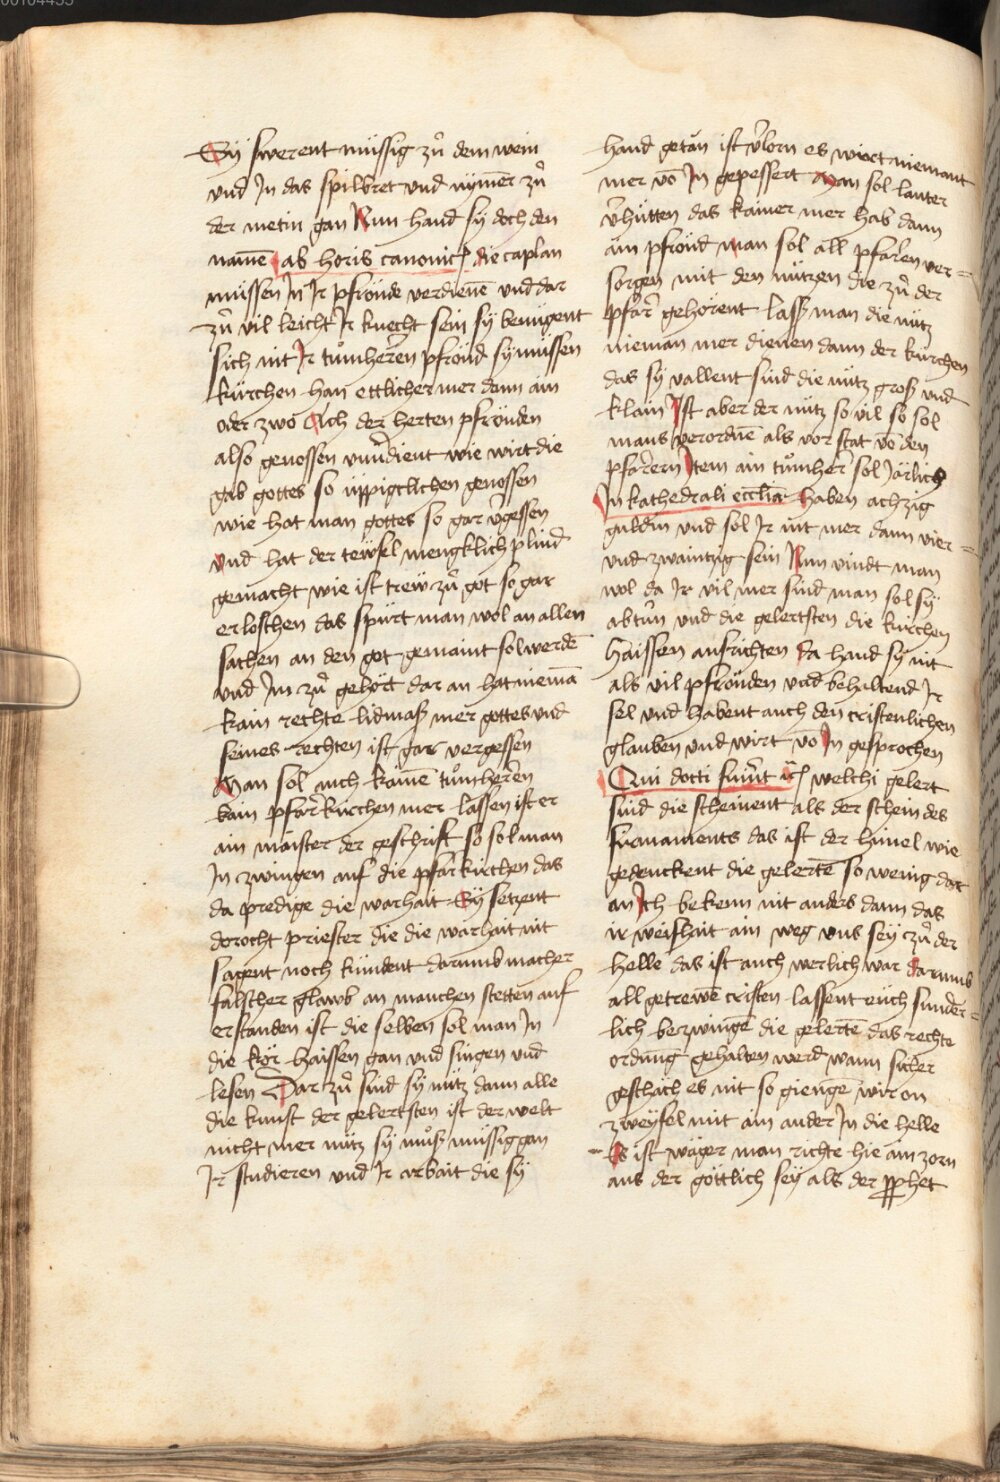 Sy swerent müssig zů dem wein
vnd In das spilbret vnd nymer zů
der metin gan Nun hand sy doch den
namē ab horis canonicis die caplan
müssen In Ir pfrönde verdienē vnd dar
zů vil leicht Ir knecht sein sy benügent
sich nit Ir tůmherren pfrönd sy müssen
kürchen han ettlicher mer dann ain
oder zwo Sich der herten pfrönden
also genossen vnu̅dient wie wirt die
gab gottes so üppigclichen genossen
wie hat man gottes so gar v̄gessen
vnd hat der tewfel mengklich plind
gemacht wie ist trew zů got so gar
erloschen das spürt man wol an allen
sachen an den got gemaint sol werdē
vnd Im zů gehört dar an hat niemā
kain rechte lidmasß mer gottes vnd
seines rechten ist gar vergessen
Man sol auch kainē tůmherren
kain pfarrkürchen mer lassen ist er
ain maister der geschrift so sol man
In zwingen auf die pfarkürchen das
da predige die warhait Sy setzent
dorocht priester die die warhait nit
sagent noch kündent darumb macher
falscher glawb an manchen stetten auf
erstanden ist die selben sol man In
die kör haissen gan vnd singen vnd
lesen Dar zů sind sy nütz dann alle
die kunst der gelertsten ist der welt
nicht mer nütz sy můß müssig gan
Ir studieren vnd Ir arbait die sy
hand getan ist v̄lorn es wirt niemant
mer vō In gepessert Man sol lauter
v̄hütten das kainer mer hab dann
ain pfrönd man sol all pfarren ver=
sorgen mit den nützen die zů der
pfarr gehörent lasß man die nütz
nieman mer dienen dann der kürchen
das sy vallent sind die nütz groß vnd
klain Ist aber der nütz so vil so sol
mans verordnē als vor stat vō den
pfarrern Item ain tůmherr sol Järlich
In kathedrali ecclīa haben achzig
guldin vnd sol Ir nit mer dann vier=
vnd zwaintzig sein Nun vindt man
wol da Ir vil mer sind man sol sy
abtůn vnd die gelertsten die kirchen
haissen ausrichten da hand sy nit
als vil pfrönden vnd behaltend Ir
sel vnd habent auch den cristenlichen
glauben vnd wirt vō In gesprochen
Qui docti fuer̄t etc welchi gelert
sind die scheinent als der schein des
firmaments das ist der himel wie
gedenckent die gelertē so wenig dar
an Ich bekenn nit anders dann das
ir weishait ain weg vns sey czů der
helle das ist auch werlich war darumb
all getrewē cristen lassent euch sunder=
lich bezwingē die gelertē das rechte
ordnung gehalten werd wann sicher
geschäch es nit so giengē wir on
zweyfel mit ain ander In die helle
Es ist wäger man richte hie ain zorn
aus der göttlich sey als der prophet